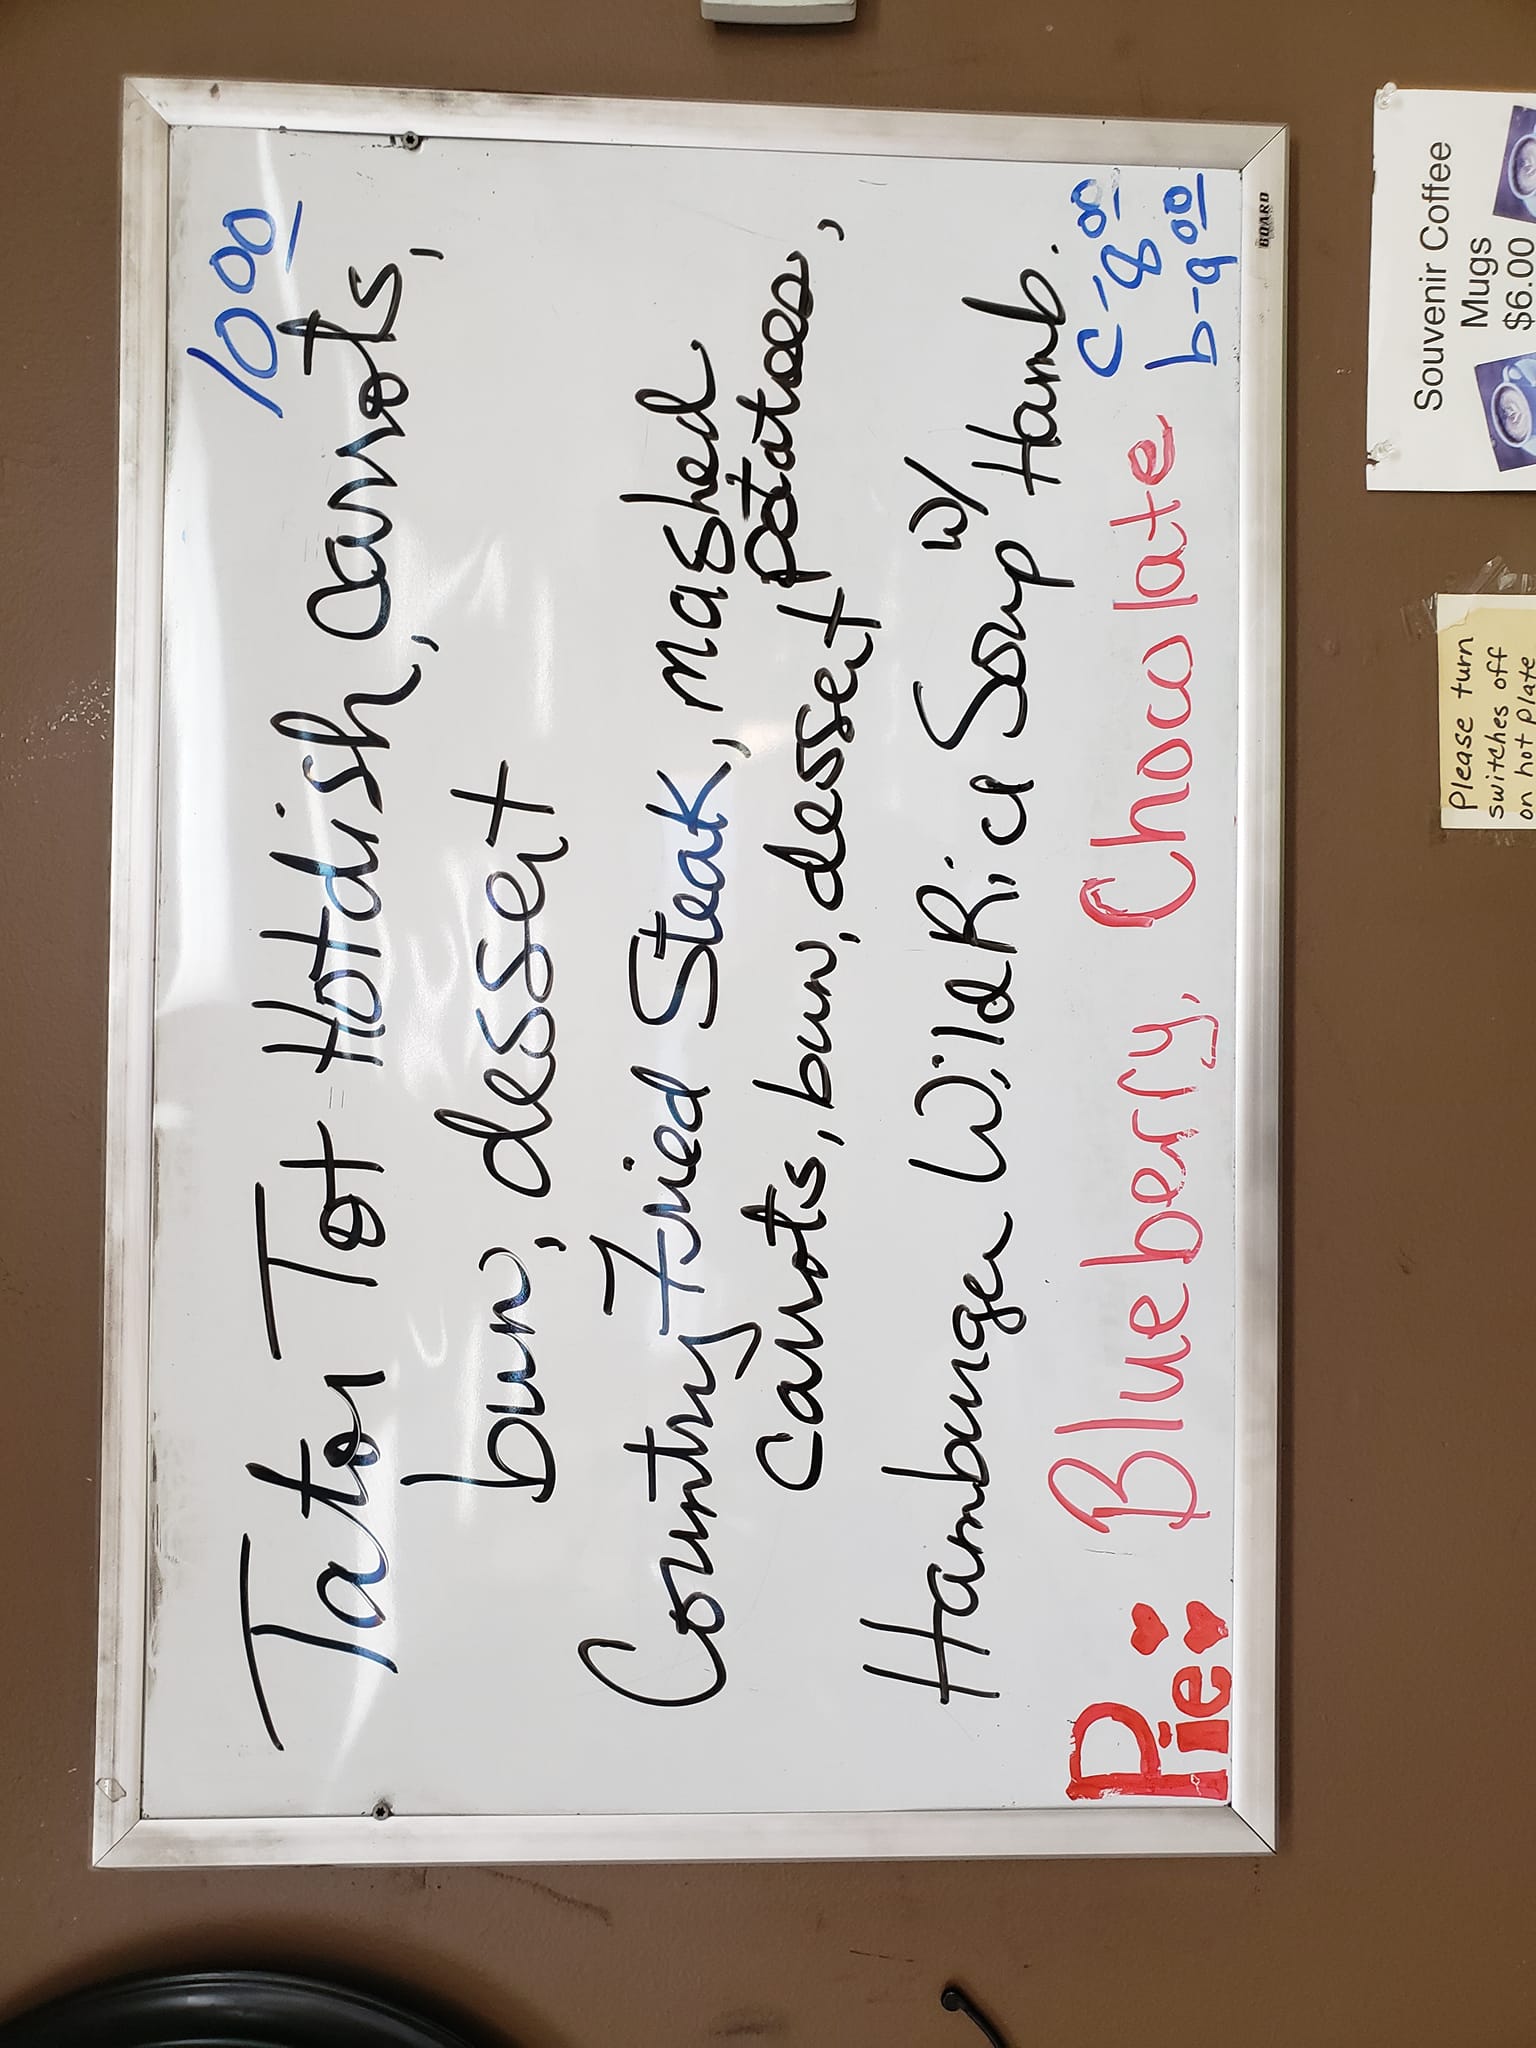 10 00
Tator Tot Hotdish, carrots,
bun, dessert
Country Fried Steak, mashed
potatoes,
carrots, bun, dessert
Hamburger Wild Rice Soup w/
Hamb.
Pie Blueberry, Chocolate
c-8 00
b-9 00
BOARD
Souvenir Coffee
Mugs
$6.00
Please turn
switches off
on hot plate